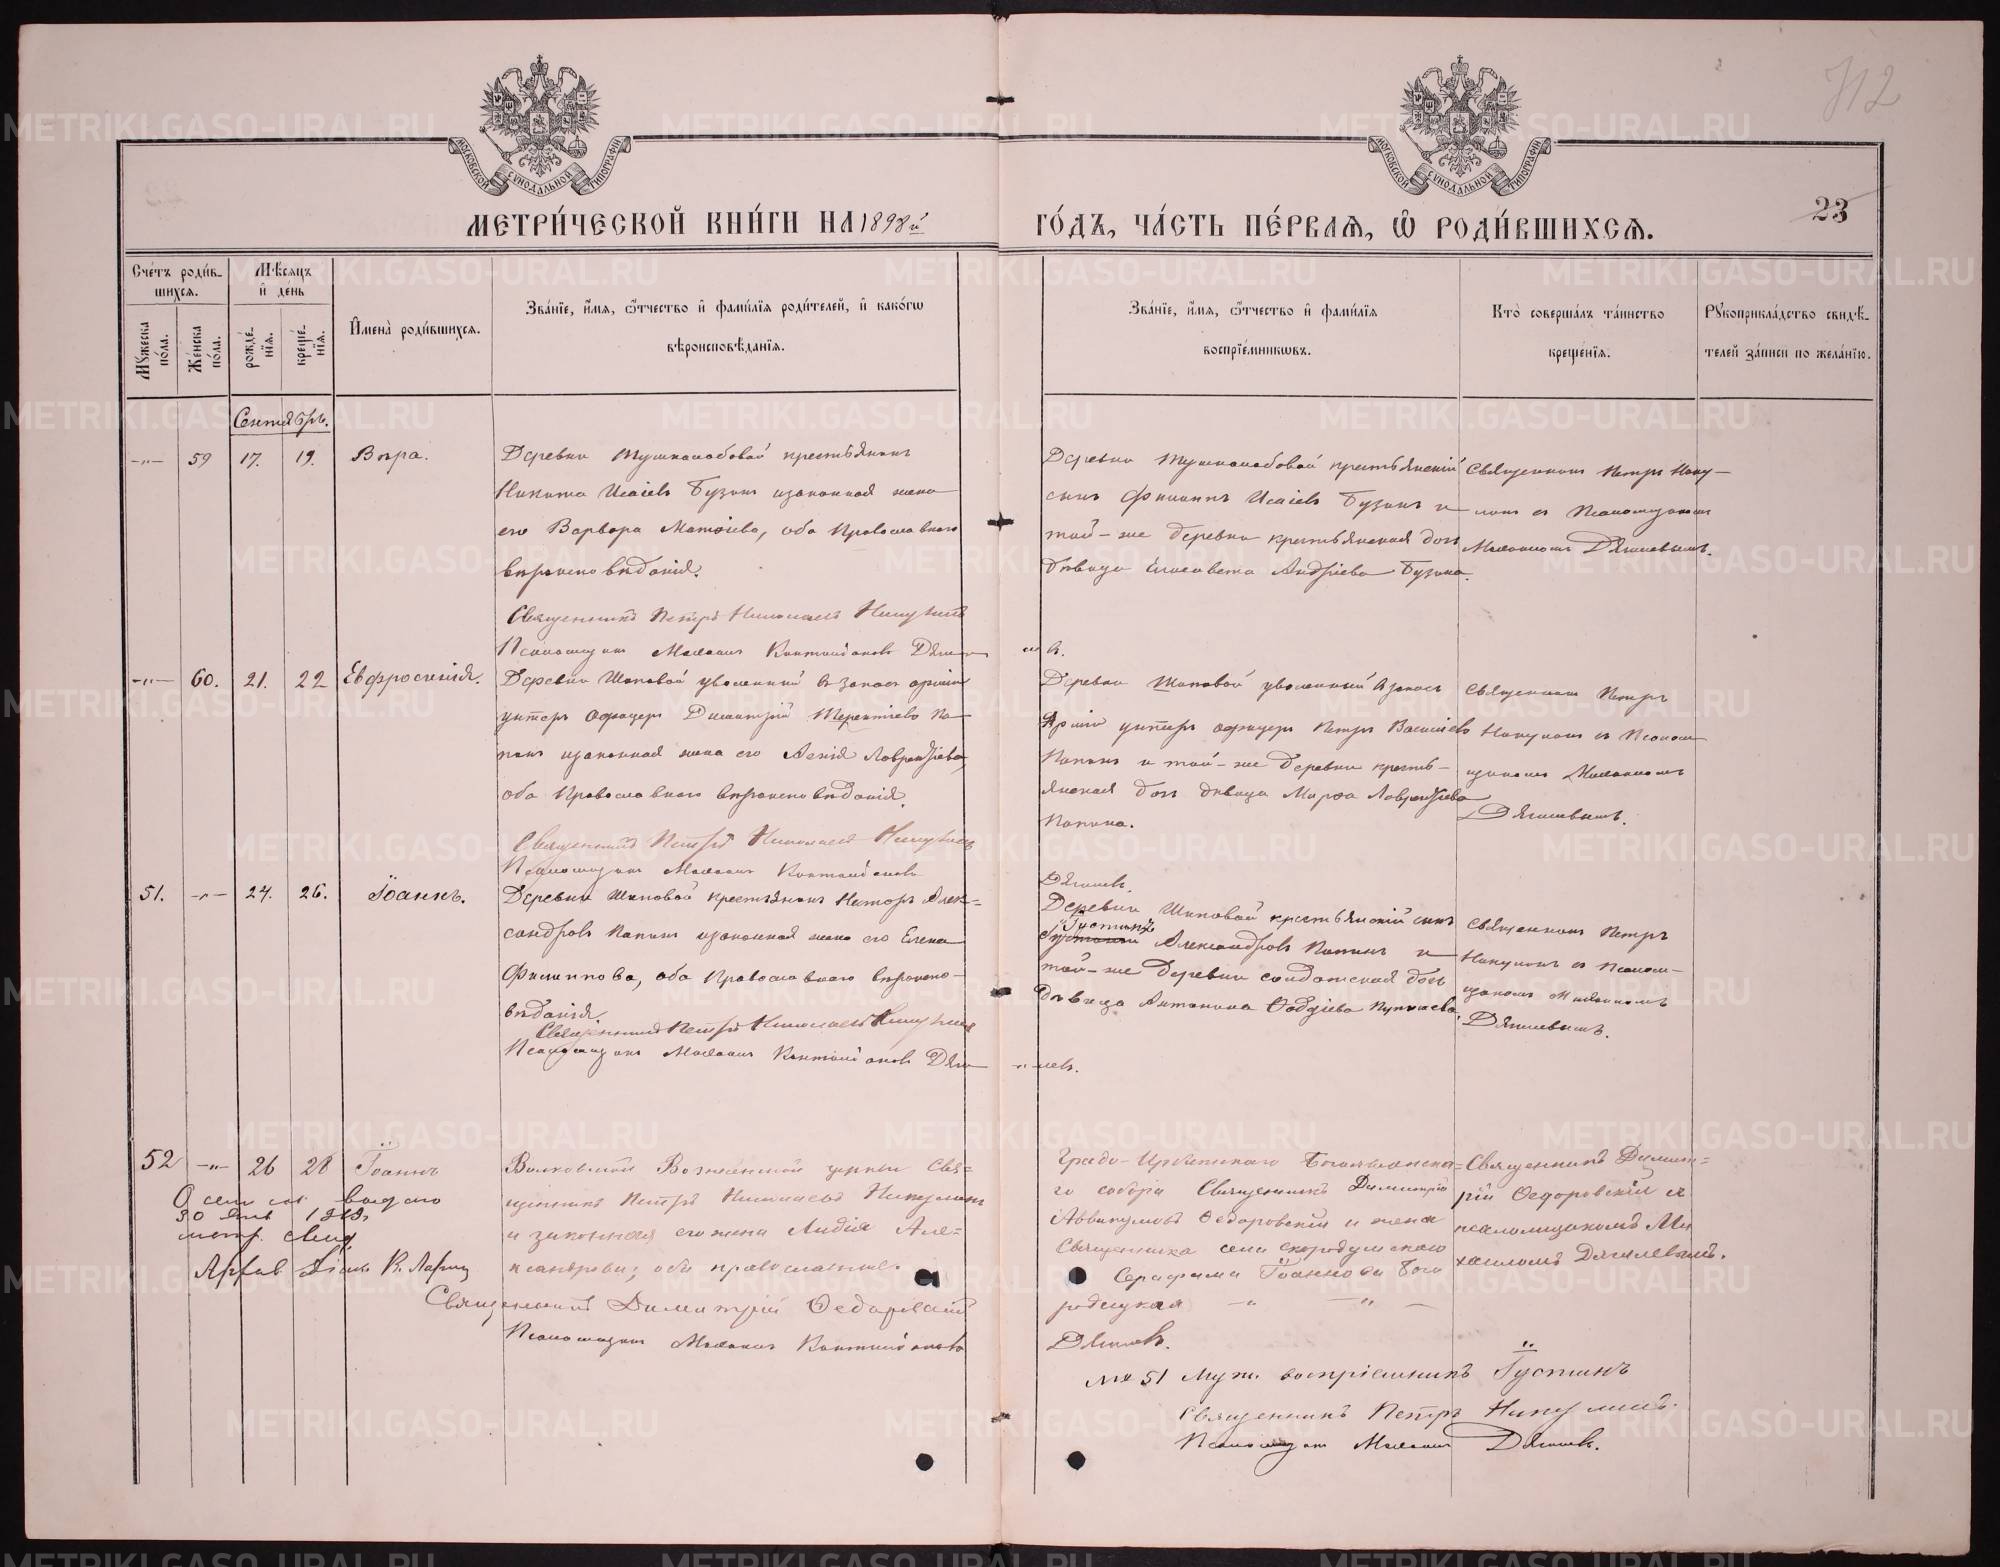 712
МОСКОВСКОЙ СѴНОДАЛЬНОЙ ТИПОГРАФІИ
МОСКОВСКОЙ СѴНОДАЛЬНОЙ ТИПОГРАФІИ
МЕТРИ́ЧЕСКОЙ КНИ́ГИ НА 1898й
ГО́ДЪ, ЧА́СТЬ ПЕ́РВАѦ, Ѿ РОДИ́ВШИХСѦ.
23
Сче́тъ роди́в-
шихсѧ.
Мѣ́сѧцъ
и҆ де́нь
Мꙋ́жеска по́ла.
Же́нска по́ла.
рожде́-
нїѧ.
креще́-
нїѧ.
И҆мена̀ роди́вшихсѧ.
Зва́нїе, и҆́мѧ, ѻ҆́тчество и҆ фами́лїѧ роди́телей, и҆ како́гѡ
вѣроисповѣ́данїѧ.
Зва́нїе, и҆́мѧ, ѻ҆́тчество и҆ фами́лїѧ
воспрїе́мникѡвъ.
Кто̀ соверша́лъ та́инство
креще́нїѧ.
Рꙋкоприкла́дство свидѣ́-
телей за́писи по жела́нїю.
Сентябрь.
-"- 59 17. 19. Вѣра.
Деревни крестьянинъ
Никита Исаіевъ Бузинъ и законная жена
его Варвара Матѳіева, оба Православнаго
вѣроисповѣданія.
Священникъ Петръ Николаевъ Никулинъ
Псаломщикъ
Деревни крестьянскій
сынъ Филиппъ Исаіевъ Бузинъ и
той-же деревни крестьянская дочь
дѣвица Елисавета Андреева Бузина.
Священникъ Петръ Нику-
линъ съ Псаломщикомъ
Дягилевымъ.
-"- 60. 21. 22 Евфросинія.
Деревни уволенный въ запасъ арміи
унтеръ офицеръ Димитрій Терентіевъ Па-
пинъ и законная жена его Ксенія Лаврентіева,
оба Православнаго вѣроисповѣданія.
Священникъ Петръ Николаевъ Никулинъ
Псаломщикъ
Дягилевъ.
Деревни уволенный въ запасъ
Арміи унтеръ офицеръ Петръ Василіевъ
Папинъ и той-же деревни кресть-
янская дочь дѣвица Марѳа Лаврентіева
Папина.
Священникъ Петръ
Никулинъ съ Псалом-
щикомъ
Дягилевымъ.
51. -"- 24. 26. Іоаннъ.
Деревни крестьянинъ Несторъ Алек-
сандровъ Папинъ и законная жена его Елена
Филиппова, оба Православнаго вѣроиспо-
вѣданія
Священникъ Петръ Николаевъ Никулинъ
Псаломщикъ
Деревни крестьянскій сынъ
Іустинъ
Александровъ Папинъ и
той-же деревни солдатская дочь
дѣвица Антонина
Священникъ Петръ
Никулинъ съ Псалом-
щикомъ
Дягилевымъ.
52 -"- 26 28 Іоаннъ
Вознесенской церкви Свя-
щенникъ Петръ Николаевъ Никулинъ
и законная его жена Лидія Але-
ксандровна, оба православные.
Священникъ Димитрій Ѳедоровскій
Псаломщикъ
Дягилевъ.
Градо-Ирбитскаго Богоявленска-
го собора Священникъ Димитрій
Аввакумовъ Ѳедоровскій и жена
Священника села Скородумскаго
Серафима Іоаннова Бого
родицкая
Священникъ Димит-
рій Ѳедоровскій съ
псаломщикомъ
Дягилевымъ.
О семъ выдано
30 1919г
метр. свид.
№ 51 Муж. воспріемникъ Іустинъ
Священникъ Петръ Никулинъ.
Псаломщикъ Дягилевъ.
METRIKI.GASO-URAL.RU